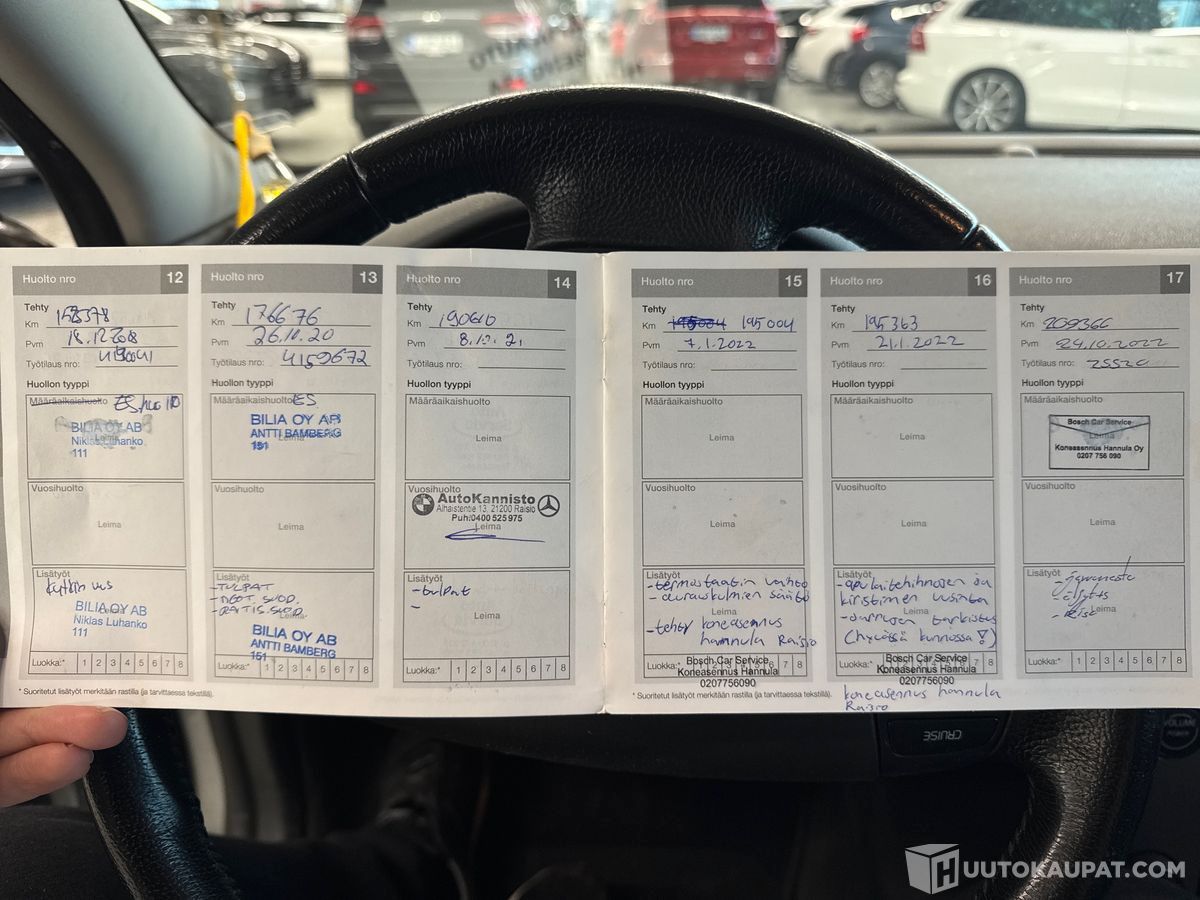 Huolto nro 12
Tehty
Km
Pvm
Työtilaus nro:
Huollon tyyppi
Määräaikaishuolto
BILIA OY AB
Niklas Luhanko
111
Vuosihuolto
Leima
Lisätyöt
BILIA OY AB
Niklas Luhanko
111
Luokka:* 1 2 3 4 5 6 7 8
* Suoritetut lisätyöt merkitään rastilla (ja tarvittaessa tekstillä).
Huolto nro 13
Tehty
Km 176676
Pvm 26.10.20
Työtilaus nro: 4159672
Huollon tyyppi
Määräaikaishuolto ES
BILIA OY AB
ANTTI BAMBERG
151
Vuosihuolto
Leima
Lisätyöt
-TULPAT
Leima
BILIA OY AB
ANTTI BAMBERG
151
1 2 3 4 5 6 7 8
Huolto nro 14
Tehty
Km 190610
Pvm
Työtilaus nro:
Huollon tyyppi
Määräaikaishuolto
Leima
Vuosihuolto
AutoKannisto
Alhaistentie 13, 21200 Raisio
Puh:0400 525 975
Leima
Lisätyöt
-tulpat
-
Leima
Luokka:* 1 2 3 4 5 6 7 8
Huolto nro 15
Tehty
Km 195004 195004
Pvm 7.1.2022
Työtilaus nro:
Huollon tyyppi
Määräaikaishuolto
Leima
Vuosihuolto
Leima
Lisätyöt
-termostaatin vaihto
-aurauskulmien säätö
Leima
-tehty koneasennus
hannula Raisio
Luokka:* 7 8
Bosch Car Service
Koneasennus Hannula
0207756090
* Suoritetut lisätyöt merkitään rastilla (ja tarvittaessa tekstillä).
Huolto nro 16
Tehty
Km 195363
Pvm 21.1.2022
Työtilaus nro:
Huollon tyyppi
Määräaikaishuolto
Leima
Vuosihuolto
Leima
Lisätyöt
-apulaitehihnojen ja
kiristimen uusinta
Leima
-jarrujen tarkistus
(hyvässä kunnossa!)
Luokka:* 8
Bosch Car Service
Koneasennus Hannula
0207756090
koneasennus hannula
Raisio
Huolto nro 17
Tehty
Km 209366
Pvm 24.10.2022
Työtilaus nro: 25520
Huollon tyyppi
Määräaikaishuolto
Bosch Car Service
Leima
Koneasennus Hannula Oy
0207 756 090
Vuosihuolto
Leima
Lisätyöt
Leima
Luokka:* 1 2 3 4 5 6 7 8
CRUISE
VOLUME
POWER
HUUTOKAUPAT.COM